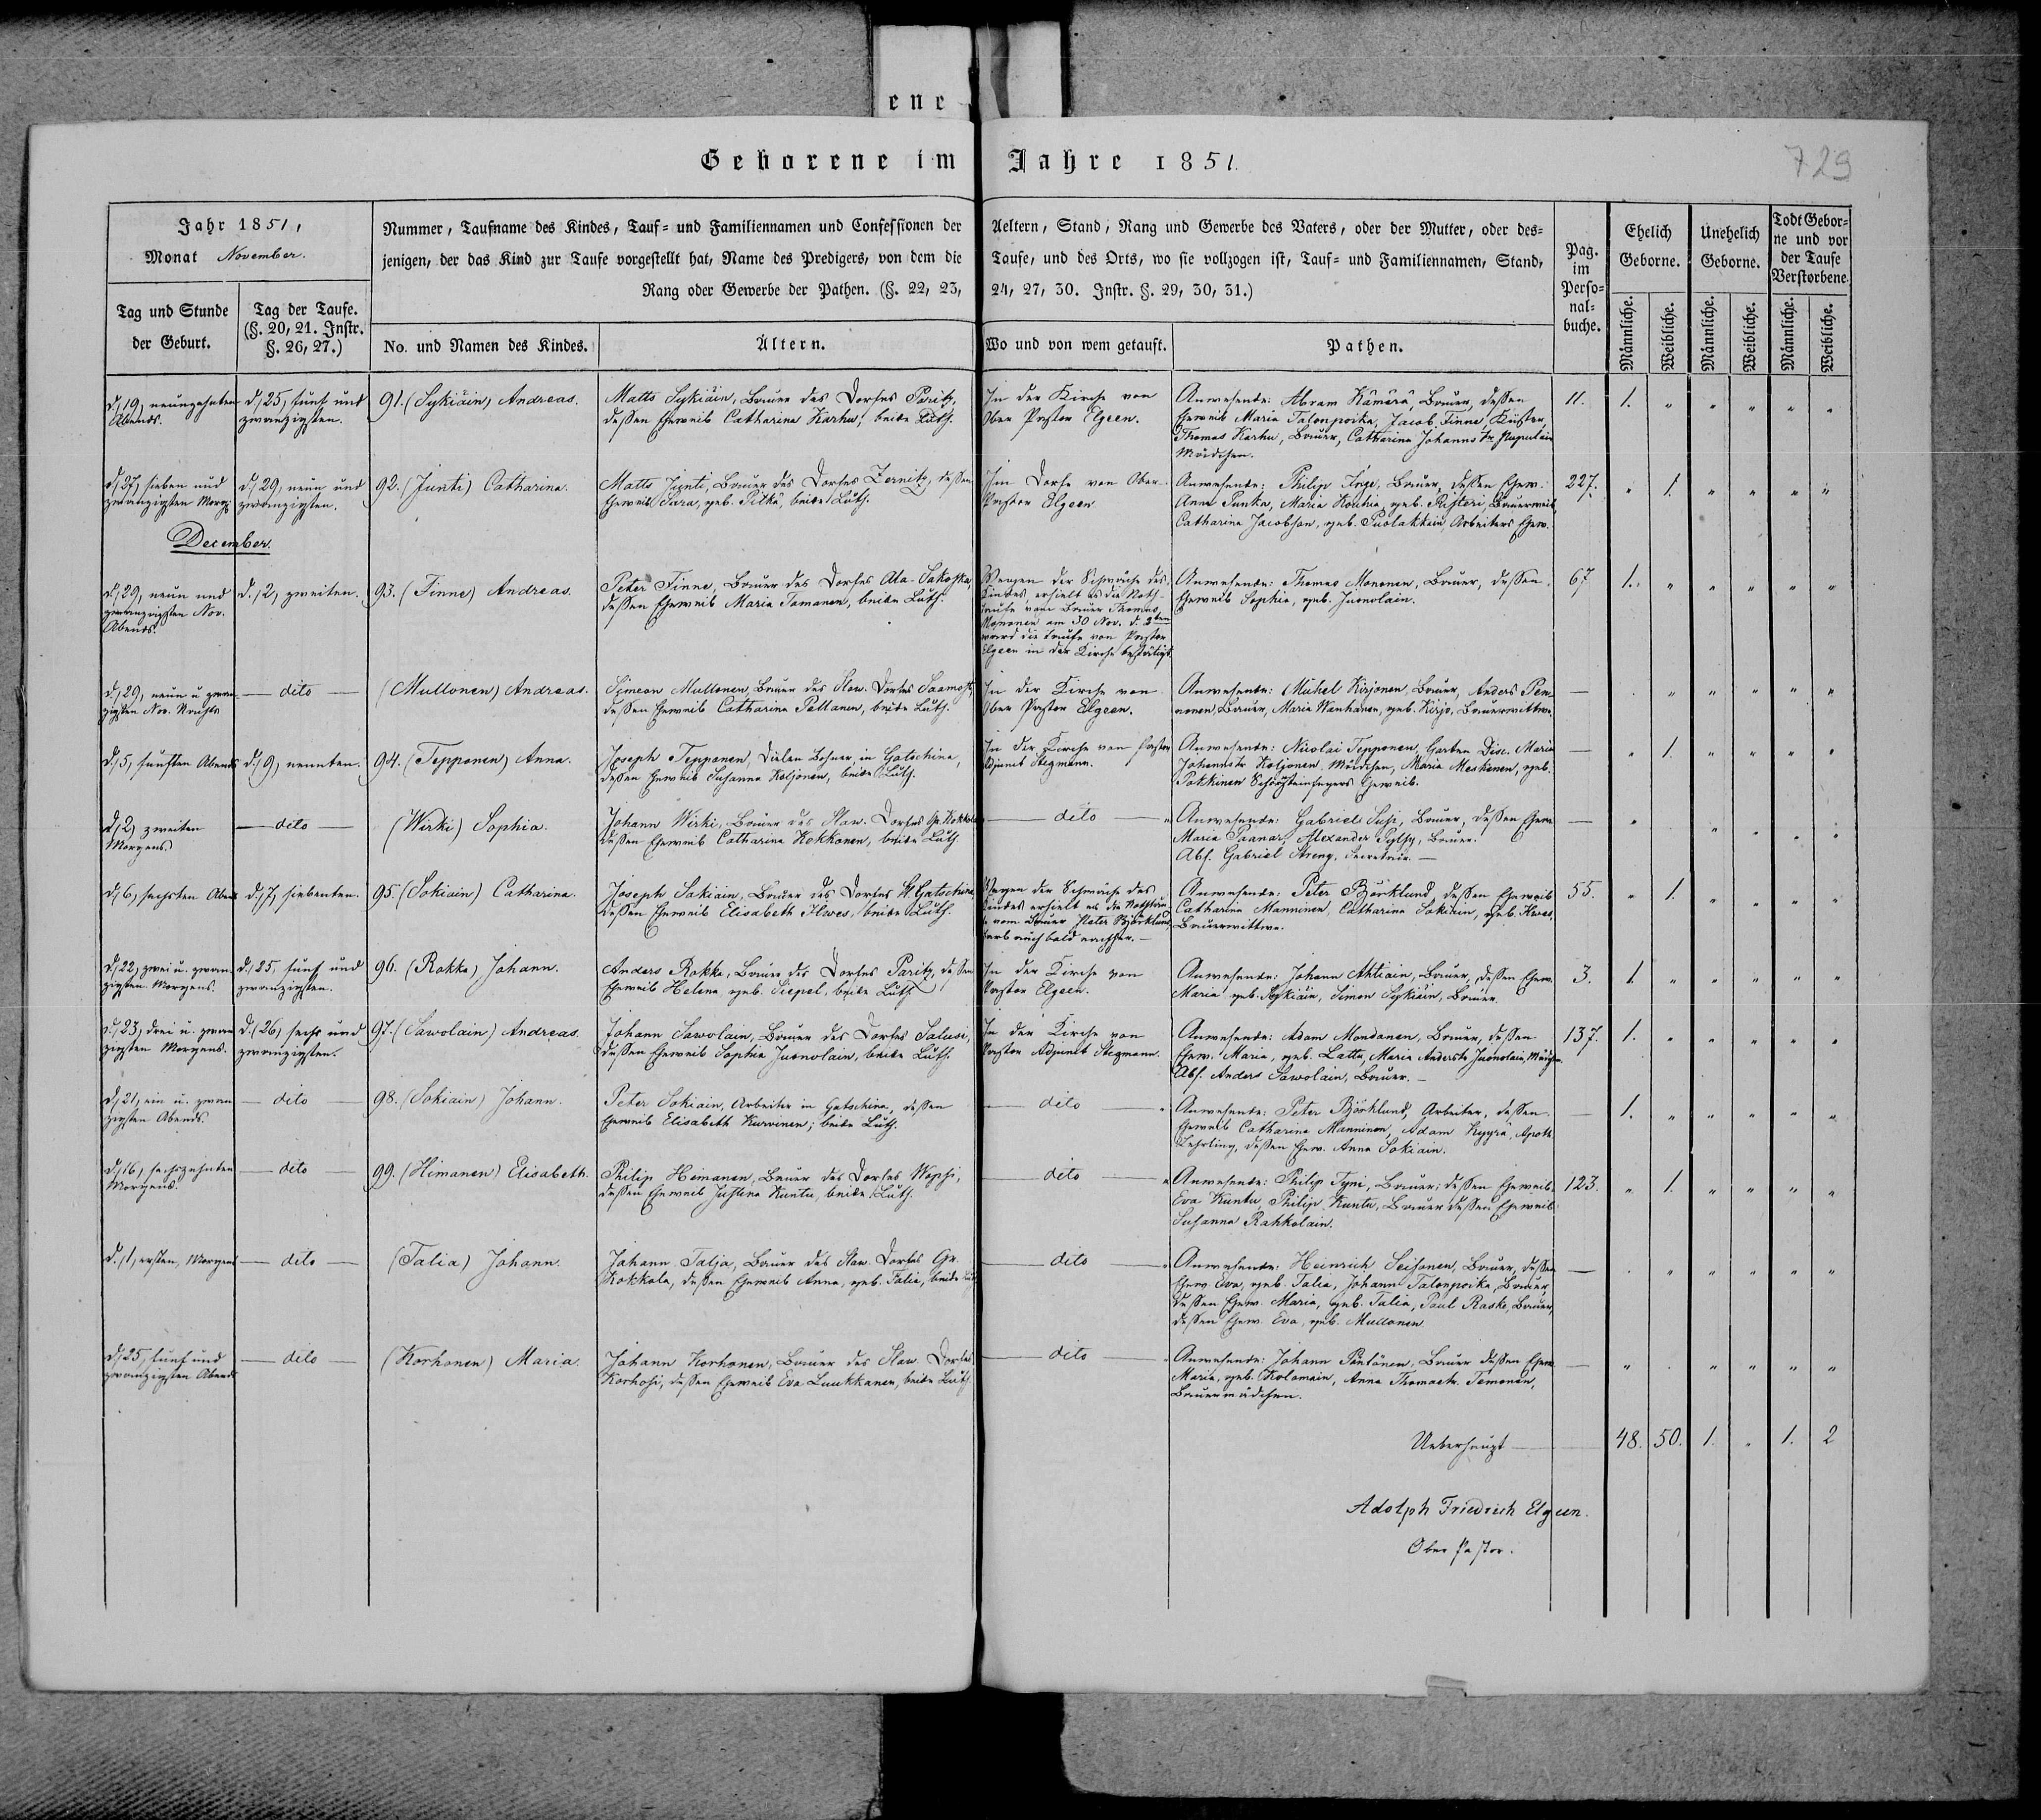 ene
Geborene im Jahre 1851.
729
Jahr 1851,
Monat November.
Nummer, Taufname des Kindes, Tauf- und Familiennamen und Confessionen der Aeltern, Stand, Rang und Gewerbe des Vaters, oder der Mutter, oder des-
jenigen, der das Kind zur Taufe vorgestellt hat, Name des Predigers, von dem die Taufe, und des Orts, wo sie vollzogen ist, Tauf- und Familiennamen, Stand,
Rang oder Gewerbe der Pathen. (§. 22, 23, 24, 27, 30. Instr. §. 29, 30, 31.)
Pag.
im
Perso-
nal-
buche.
Ehelich
Geborne.
Unehelich
Geborne.
Todt Gebor-
ne und vor
der Taufe
Verstorbene.
Tag und Stunde
der Geburt.
Tag der Taufe.
(§. 20, 21. Instr.
§. 26, 27.)
No. und Namen des Kindes.
Ältern.
Wo und von wem getauft.
Pathen.
Männliche.
Weibliche.
Männliche.
Weibliche.
Männliche.
Weibliche.
d. 19, neunzehnten
Abends.
d. 25, fünf und
zwanzigsten.
91. (Sykiäin) Andreas.
Matts Sykiäin, Bauer des Dorfes Paritz,
dessen Eheweib Catharina Karhu, beide Luth.
In der Kirche von
Ober Pastor Elgeen.
Anwesende: Abram Kämärä, Bauer, dessen
Eheweib Maria Talonpoika, Jacob Finne, Küster,
Thomas Karhu, Bauer, Catharina Johannstr
Mädchen.
11. 1. " " " " "
d. 27, sieben und
zwanzigsten Morg.
d. 29, neun und
zwanzigsten.
92. (Junti) Catharina.
Matts Junti, Bauer des Dorfes Zernitz, dessen
Eheweib Sara, geb. Pitkä, beide Luth.
Im Dorfe von Ober-
Pastor Elgeen
Anwesende: Philip Inge, Bauer, dessen Ehew.
Anna Punka, Maria geb. Bauerweib,
Catharina Jacobson, geb. Puolakkain, Arbeiters Ehew.
227. " 1. " " " "
December.
d. 29, neun und
zwanzigsten Nov.
Abends.
d. 2, zweiten.
93. (Finne) Andreas.
Peter Finne, Bauer des Dorfes Ala-Sakoska,
dessen Eheweib Maria Tamanen, beide Luth.
Wegen der Schwäche des
Kindes, erhielt es die Noth-
taufe vom Bauer Thomas
Mononen am 30 Nov. d. 2ten
ward die Taufe von Pastor
Elgeen in der Kirche bestätigt.
Anwesende: Thomas Mononen, Bauer, dessen
Eheweib Sophia, geb. Juonolain.
67 1. " " " " "
d. 29, neun u. zwan-
zigsten Nov. Nachts
— dito —
(Mullonen) Andreas.
Simeon Mullonen, Bauer des Slaw. Dorfes
dessen Eheweib Catharina Peltanen, beide Luth.
In der Kirche von
Ober Pastor Elgeen.
Anwesende: Michel Kirjonen, Bauer, Anders Pen-
nonen, Bauer, Maria Wanhanen, geb. Kirjo, Bauerwittwe.
— . " " " " "
d. 5, fünften Abends
d. 9, neunten.
94. (Tepponen) Anna.
Joseph Tepponen, in Gatschina,
dessen Eheweib Susanna Koljonen, beide Luth.
In der Kirche von Pastor
Adjunct Stegmann.
Anwesende: Nicolai Tepponen, Garten Disc. Maria
Johannstr Koljonen, Mädchen, Maria Meskenen, geb.
Pokkinen Schornsteinfegers Eheweib.
— " 1. " " " "
d. 2, zweiten
Morgens
— dito —
(Wirki) Sophia.
Johann Wirki, Bauer des Slaw. Dorfes Gr. Kokkola
dessen Eheweib Catharina Kokkonen, beide Luth.
— dito —
Anwesende: Gabriel Susi, Bauer, dessen Ehew.
Maria Paanar, Alexander Pylsy, Bauer.
Abs. Gabriel Streng, Secretair. —
— " . " " " "
d. 6, sechsten Abend
d. 7, siebenten.
95. (Sokiain) Catharina.
Joseph Sakiain, Bauer des Dorfes Kl. Gatschina,
dessen Eheweib Elisabeth Ilwes, beide Luth.
Wegen der Schwäche des
Kindes erhielt es die Nothtau-
fe vom Bauer Peter Björklund,
starb auch bald nachher. —
Anwesende: Peter Björklund dessen Eheweib
Catharina Manninen, Catharina Sokiain, geb. Ilwes,
Bauerwittwe.
55. " 1. " " " "
d. 22, zwei u. zwan-
zigsten Morgens.
d. 25, fünf und
zwanzigsten.
96. (Rokka) Johann.
Anders Rokka, Bauer des Dorfes Paritz, dessen
Eheweib Helena geb. Siepel, beide Luth.
In der Kirche von
Pastor Elgeen.
Anwesende: Johann Ahtiain, Bauer, dessen Ehew.
Maria geb. Sykiäin, Simon Sykiäin, Bauer.
3. 1. " " " " "
d. 23, drei u. zwan
zigsten Morgens.
d. 26, sechs und
zwanzigsten.
97. (Sawolain) Andreas.
Johann Sawolain, Bauer des Dorfes Salusi,
dessen Eheweib Sophia Juonolain, beide Luth.
In der Kirche von
Pastor Adjunct Stegmann.
Anwesende: Adam Mondonen, Bauer, dessen
Ehew. Maria, geb. Lattu, Maria Anderstr Juonolain, Mädchen.
Abs. Anders Sawolain, Bauer. —
137. 1. " " " " "
d. 21, ein u. zwan
zigsten Abends.
— dito —
98. (Sokiain) Johann.
Peter Sokiain, Arbeiter in Gatschina, dessen
Eheweib Elisabeth Kurvinen, beide Luth.
— dito —
Anwesende: Peter Björklund, Arbeiter, dessen
Eheweib Catharina Manninen, Adam Kyyrä, Apoth.
Lehrling, dessen Ehew. Anna Sokiain.
— 1. " " " " "
d. 16, sechszehnten
Morgens.
— dito —
99. (Himanen) Elisabeth.
Philip Himanen, Bauer des Dorfes Wopsi,
dessen Eheweib Justina Kuntu, beide Luth.
— dito —
Anwesende: Philip Tyni, Bauer, dessen Eheweib
Eva Kuntu, Philip Kuntu, Bauer dessen Eheweib
Susanna Rahkolain.
123. " 1. " " " "
d. 1, ersten, Morgens
— dito —
(Talia) Johann.
Johann Talja, Bauer des Slaw. Dorfes Gr.
Kokkola, dessen Eheweib Anna, geb. Talia, beide Luth.
— dito —
Anwesende: Heinrich Seisonen, Bauer, dessen
Ehew. Eva, geb. Talia, Johann Talonpoika, Bauer,
dessen Ehew. Maria, geb. Talia, Paul Raski, Bauer,
dessen Ehew. Eva, geb. Mullonen
— . " " " " "
d. 25, fünf und
zwanzigsten Abends
— dito —
(Korhonen) Maria.
Johann Korhonen, Bauer des Slaw. Dorfes
Korhosi, dessen Eheweib Eva Luukkanen, beide Luth.
— dito —
Anwesende: Johann Päntönen, Bauer dessen Ehew.
Maria, geb. Kolomain, Anna Thomastr. Temonen,
Bauermädchen.
— " . " " " "
Ueberhaupt — 48. 50. 1. " 1. 2
Adolph Friedrich Elgeen.
Ober Pastor.